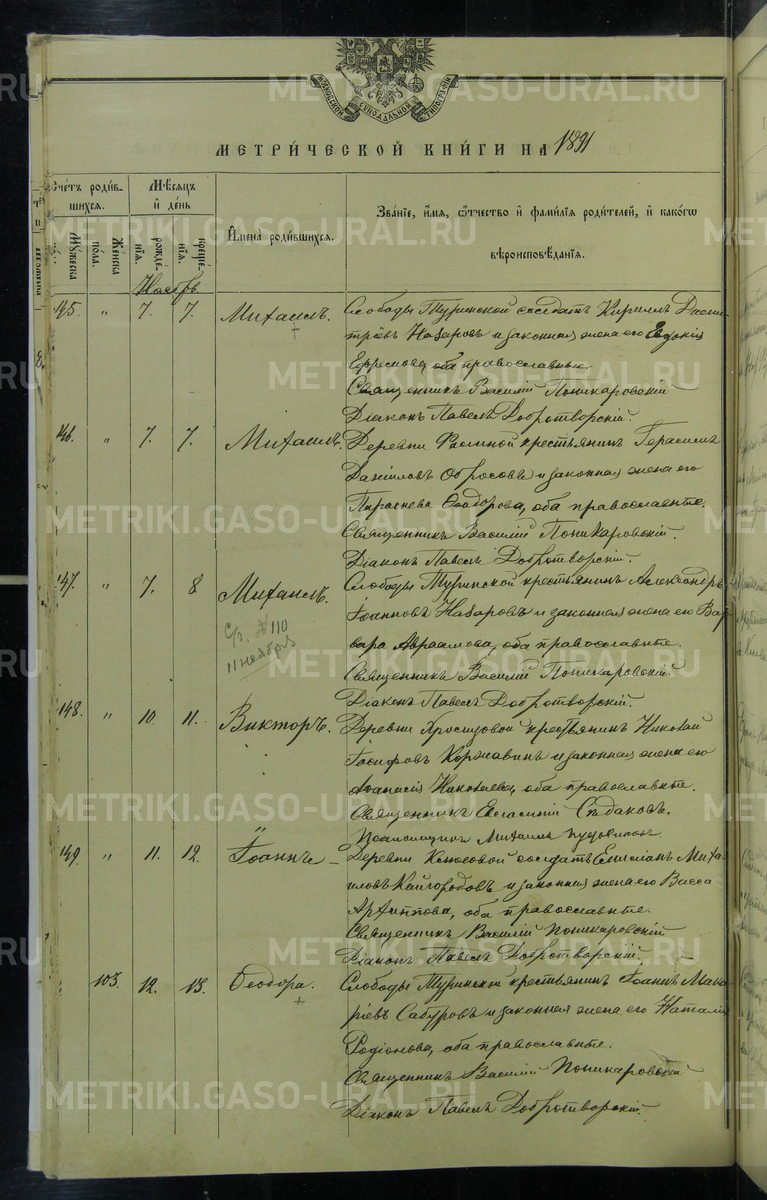 МОСКОВСКОЙ СѴНОДАЛЬНОЙ ТИПОГРАФІИ
МЕТРИ́ЧЕСКОЙ КНИ́ГИ НА 1891
Счетъ роди́вшихся.
Мужеска
Женска пола.
Мѣсяцъ и́ де́нь
рожденія.
крещенія.
И҆мена̀ роди́вшихся.
Зва́ніе, и҆́мя, ѻ҆́тчество и҆ фами́лія роди́телей, и҆ како́гѡ
вѣроисповѣ́данія.
Ноябрь
145 " 7. 7. Михаилъ. Слободы Туринской солдатъ Кириллъ Дими-
тріевъ Назаровъ и законная жена его Евдокія
Ефремова, оба православные.
Священникъ Василій Поникаровскій
Діаконъ Павелъ Добротворскій.
146. " 7. 7. Михаилъ. Деревни крестьянинъ Герасимъ
Даніиловъ и законная жена его
Параскева Ѳеодорова, оба православные.
Священникъ Василій Поникаровскій.
Діаконъ Павелъ Добротворскій.
147. " 7. 8 Михаилъ. Слободы Туринской крестьянинъ Александръ
Іоанновъ Назаровъ и законная жена его Вар-
вара Авраамова, оба православные.
110
11 ноября
Священникъ Василій Поникаровскій.
Діаконъ Павелъ Добротворскій.
148. " 10. 11. Викторъ. Деревни крестьянинъ Николай
Іосифовъ Коржавинъ и законная жена его
Аѳанасія Николаева, оба православные.
Священникъ Евгеній Сѣдаковъ.
Псаломщикъ Михаилъ
149. " 11. 12. Іоаннъ – Деревни солдатъ Емиліанъ Миха-
иловъ Кайгородовъ и законная жена его Васса
Архиппова, оба православные.
Священникъ Василій Поникаровскій
Діаконъ Павелъ Добротворскій.
103. 12. 13. Ѳеодора. Слободы Туринской крестьянинъ Іоаннъ Мака-
ріевъ Сабуровъ и законная жена его Наталія
Родіонова, оба православные.
Священникъ Василій Поникаровскій
Діаконъ Павелъ Добротворскій.
METRIKI.GASO-URAL.RU